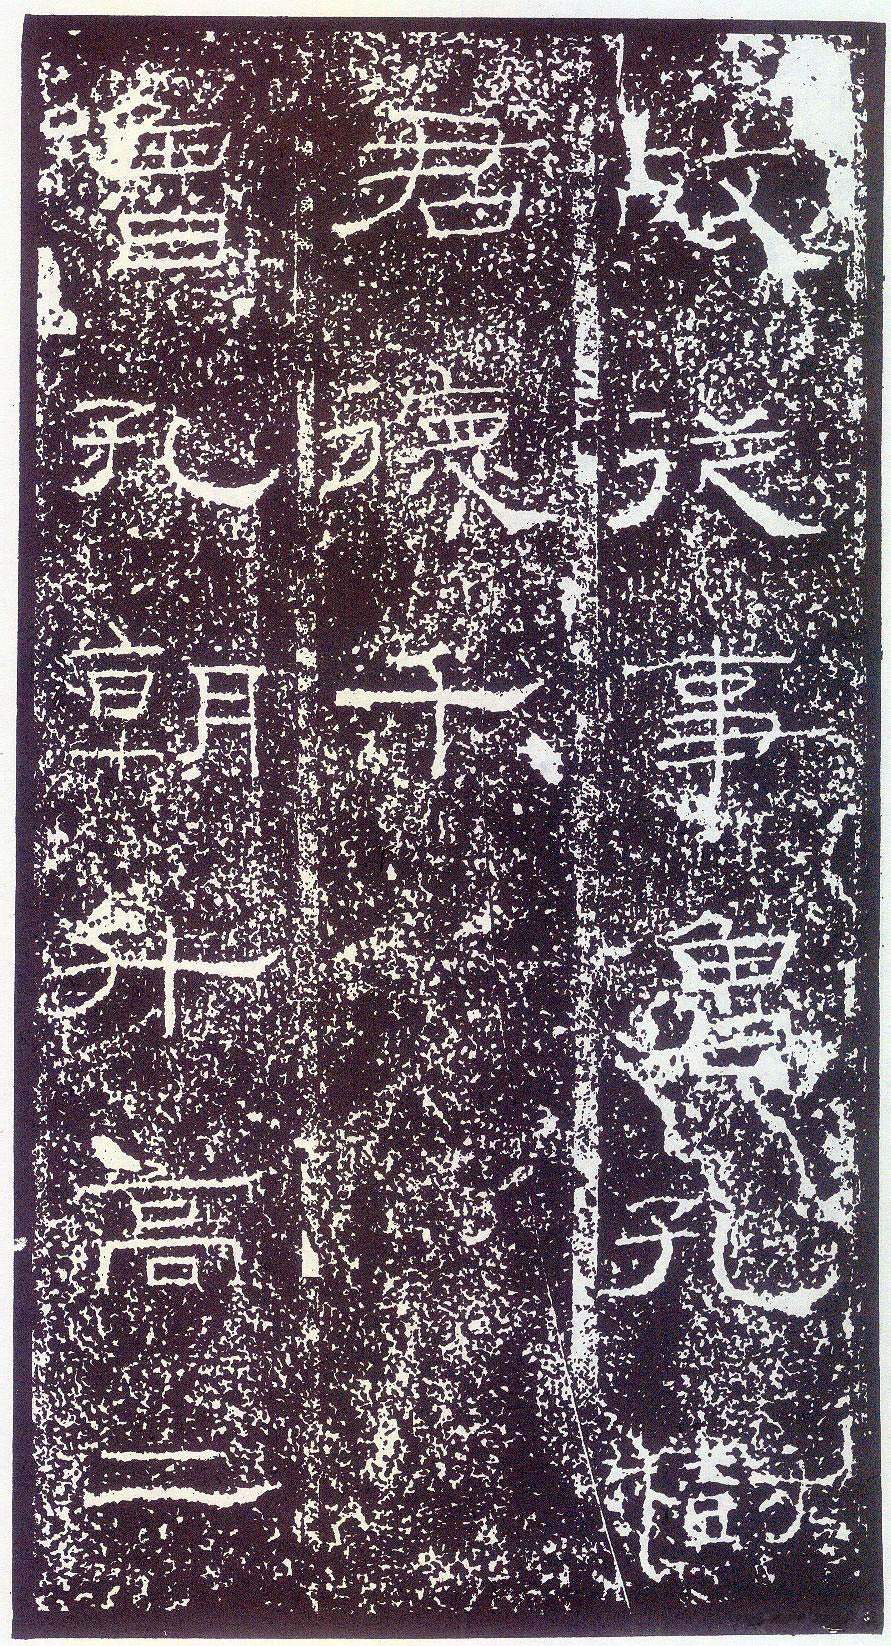 故從事魯孔樹
君德千
魯孔朝升高二